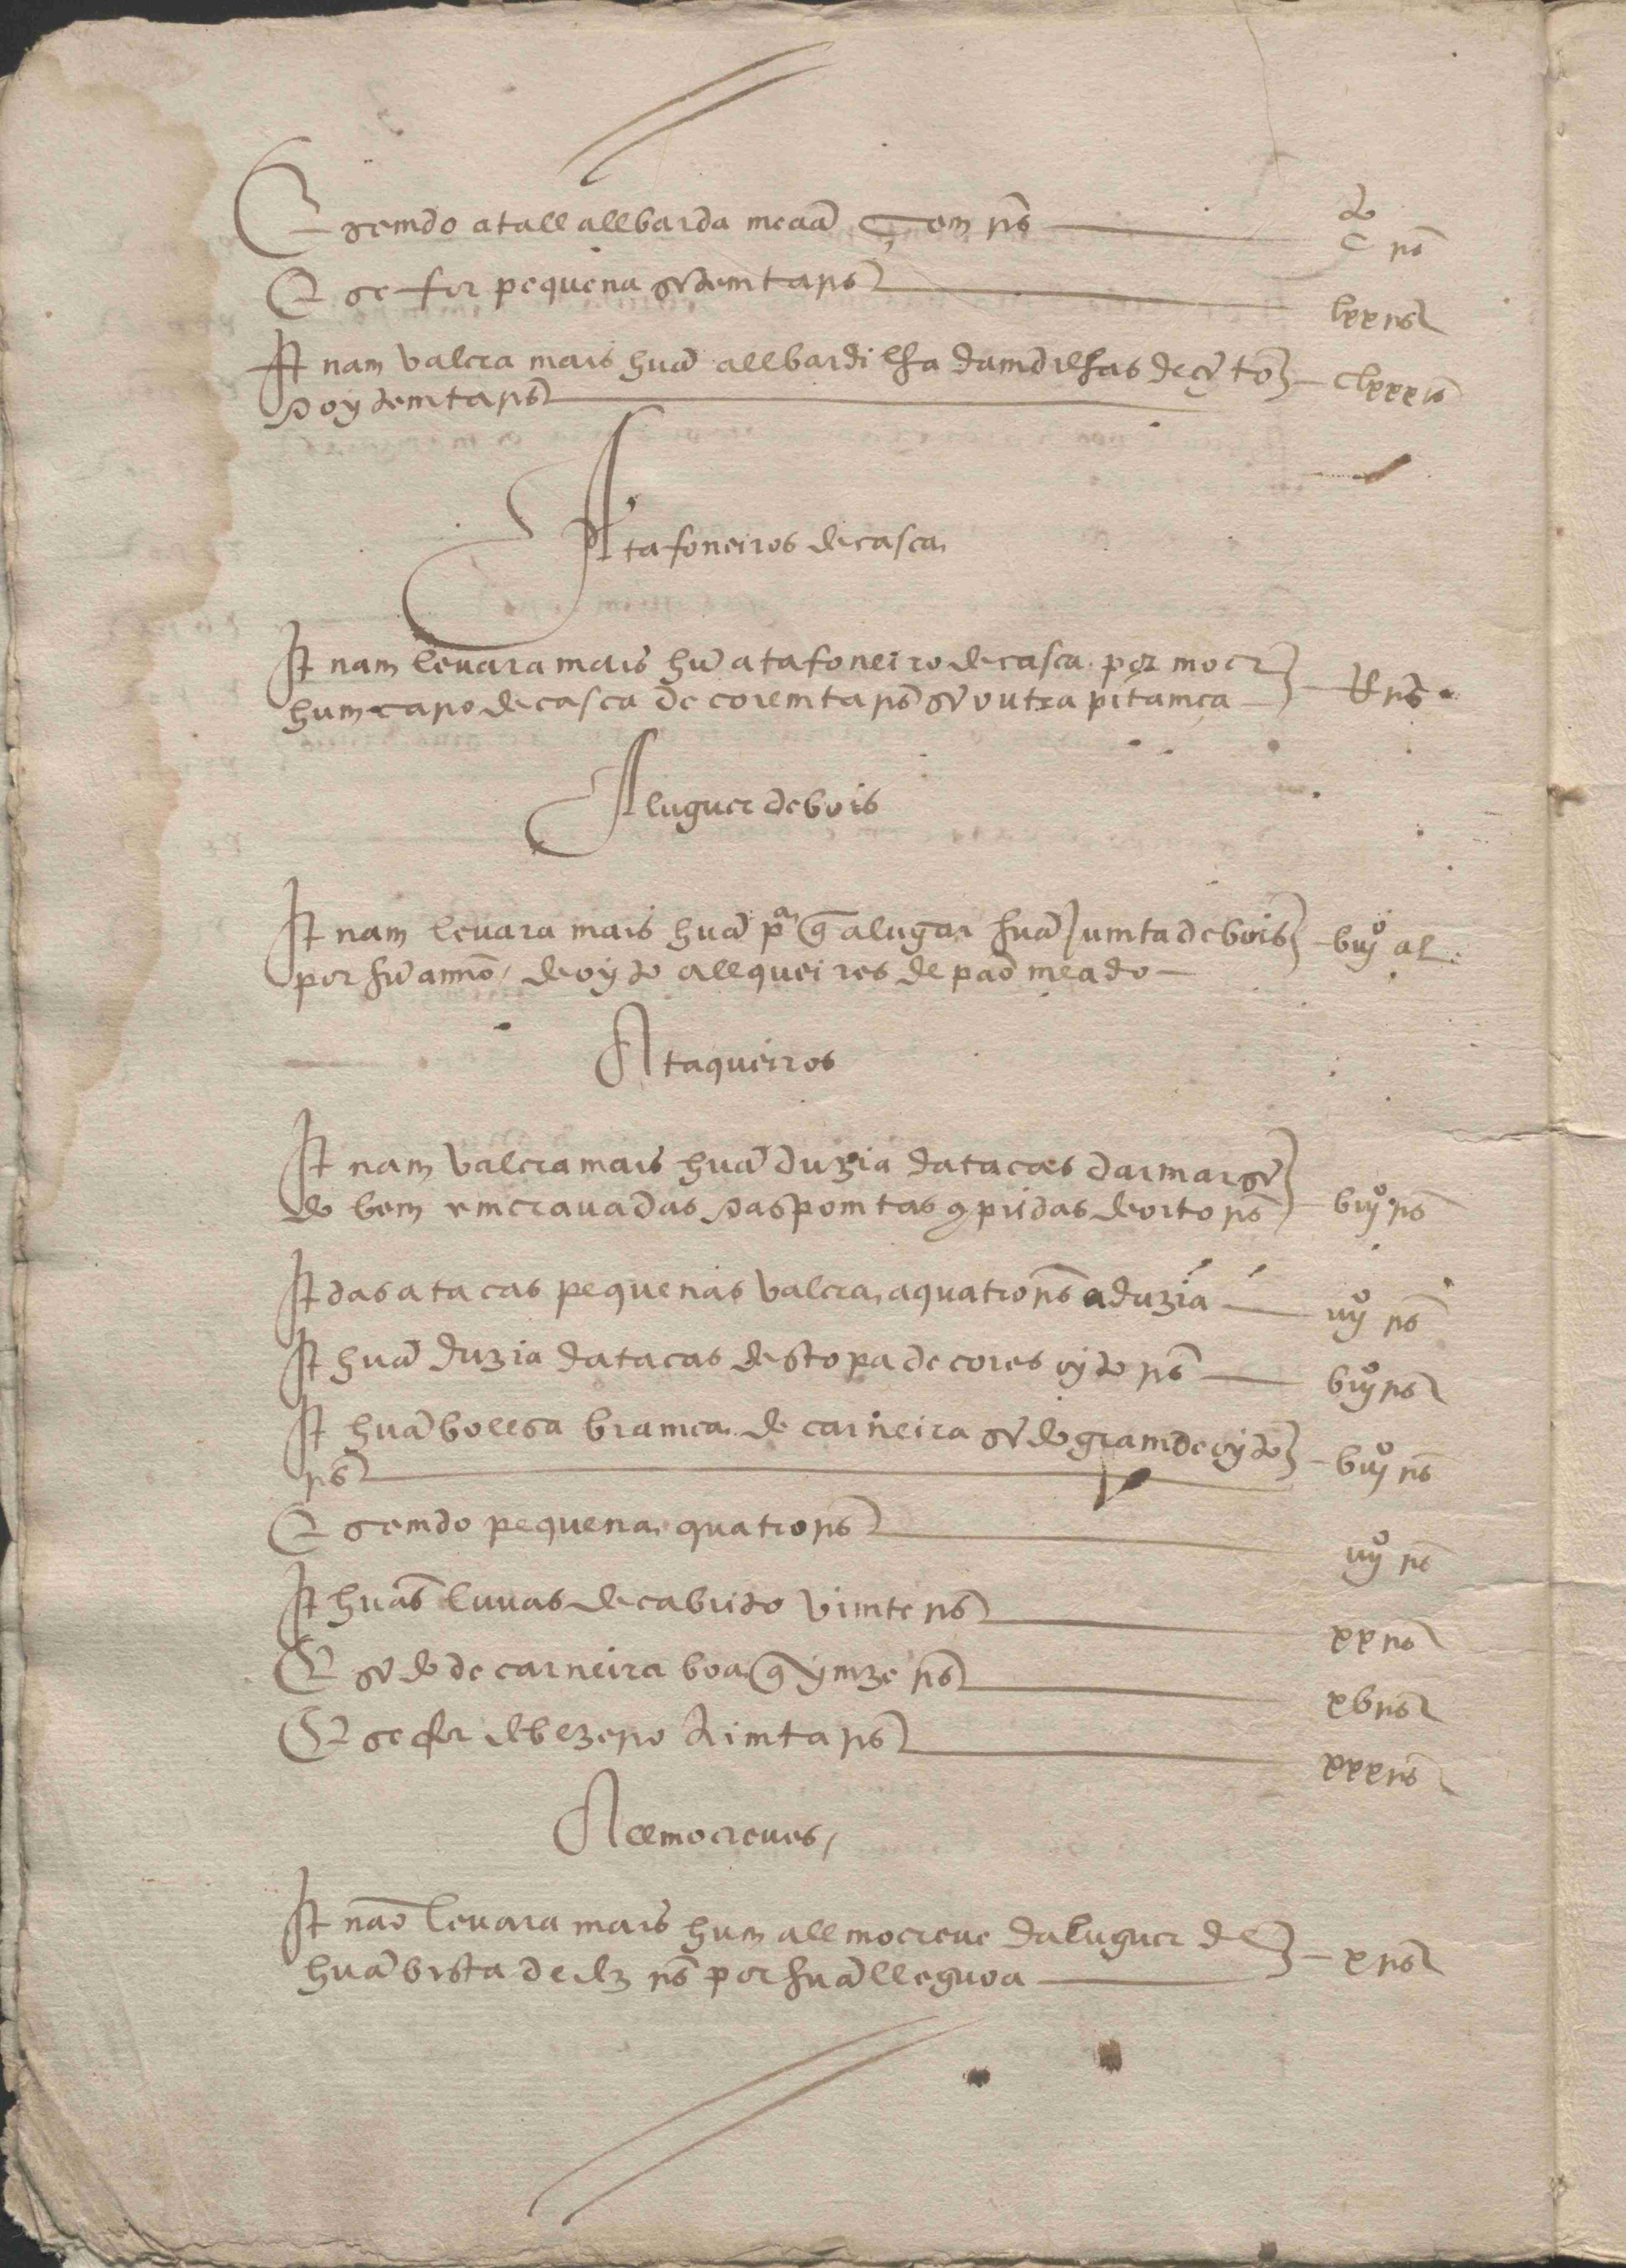 E semdo a tall allbarda meaã çem rs̃ — C rs̃
E se for pequena satemta rs̃ — lxx rs̃
It nam valera mais huã allbardilha damdilhas de çẽto
e oytemta rs̃ — clxxx rs̃
Atafoneiros de casca
It nam levara mais hũ atafoneiro de casca por moer
hum carro de casca de coremta rs̃ sẽ outra pitamça — R rs̃
Aluguer de bois
It nam levara mais huã pa q̃ alugar huã Jumta de bois
por hũ anno / de oyto allqueires de pão meado — biijo al
Ataqueiros
It nam valera mais huã duzia datacas darmar sẽ
do bem emcravadas e as pomtas cõpridas de oito rs̃ — biijo rs̃
It das atacas pequenas valera a quatro rs̃ a duzia — iiijo rs̃
It huã duzia datacas destopa de cores oyto rs̃ — biijo rs̃
It huã bollsa bramca de carneira sẽdo gramde oyto
rs̃ — biijo rs̃
E semdo pequena quatro rs̃ — iiijo rs̃
It huãs luvas de cabrito vimte rs̃ — xx rs̃
E sẽdo de carneira boa quymze rs̃ — xb rs̃
E se for de bezerro trimta rs̃ — xxx rs̃
Allmocreves /
It não levara mais hum allmocreve daluguer de
huã besta de dez rs̃ por huã lleguoa — x rs̃